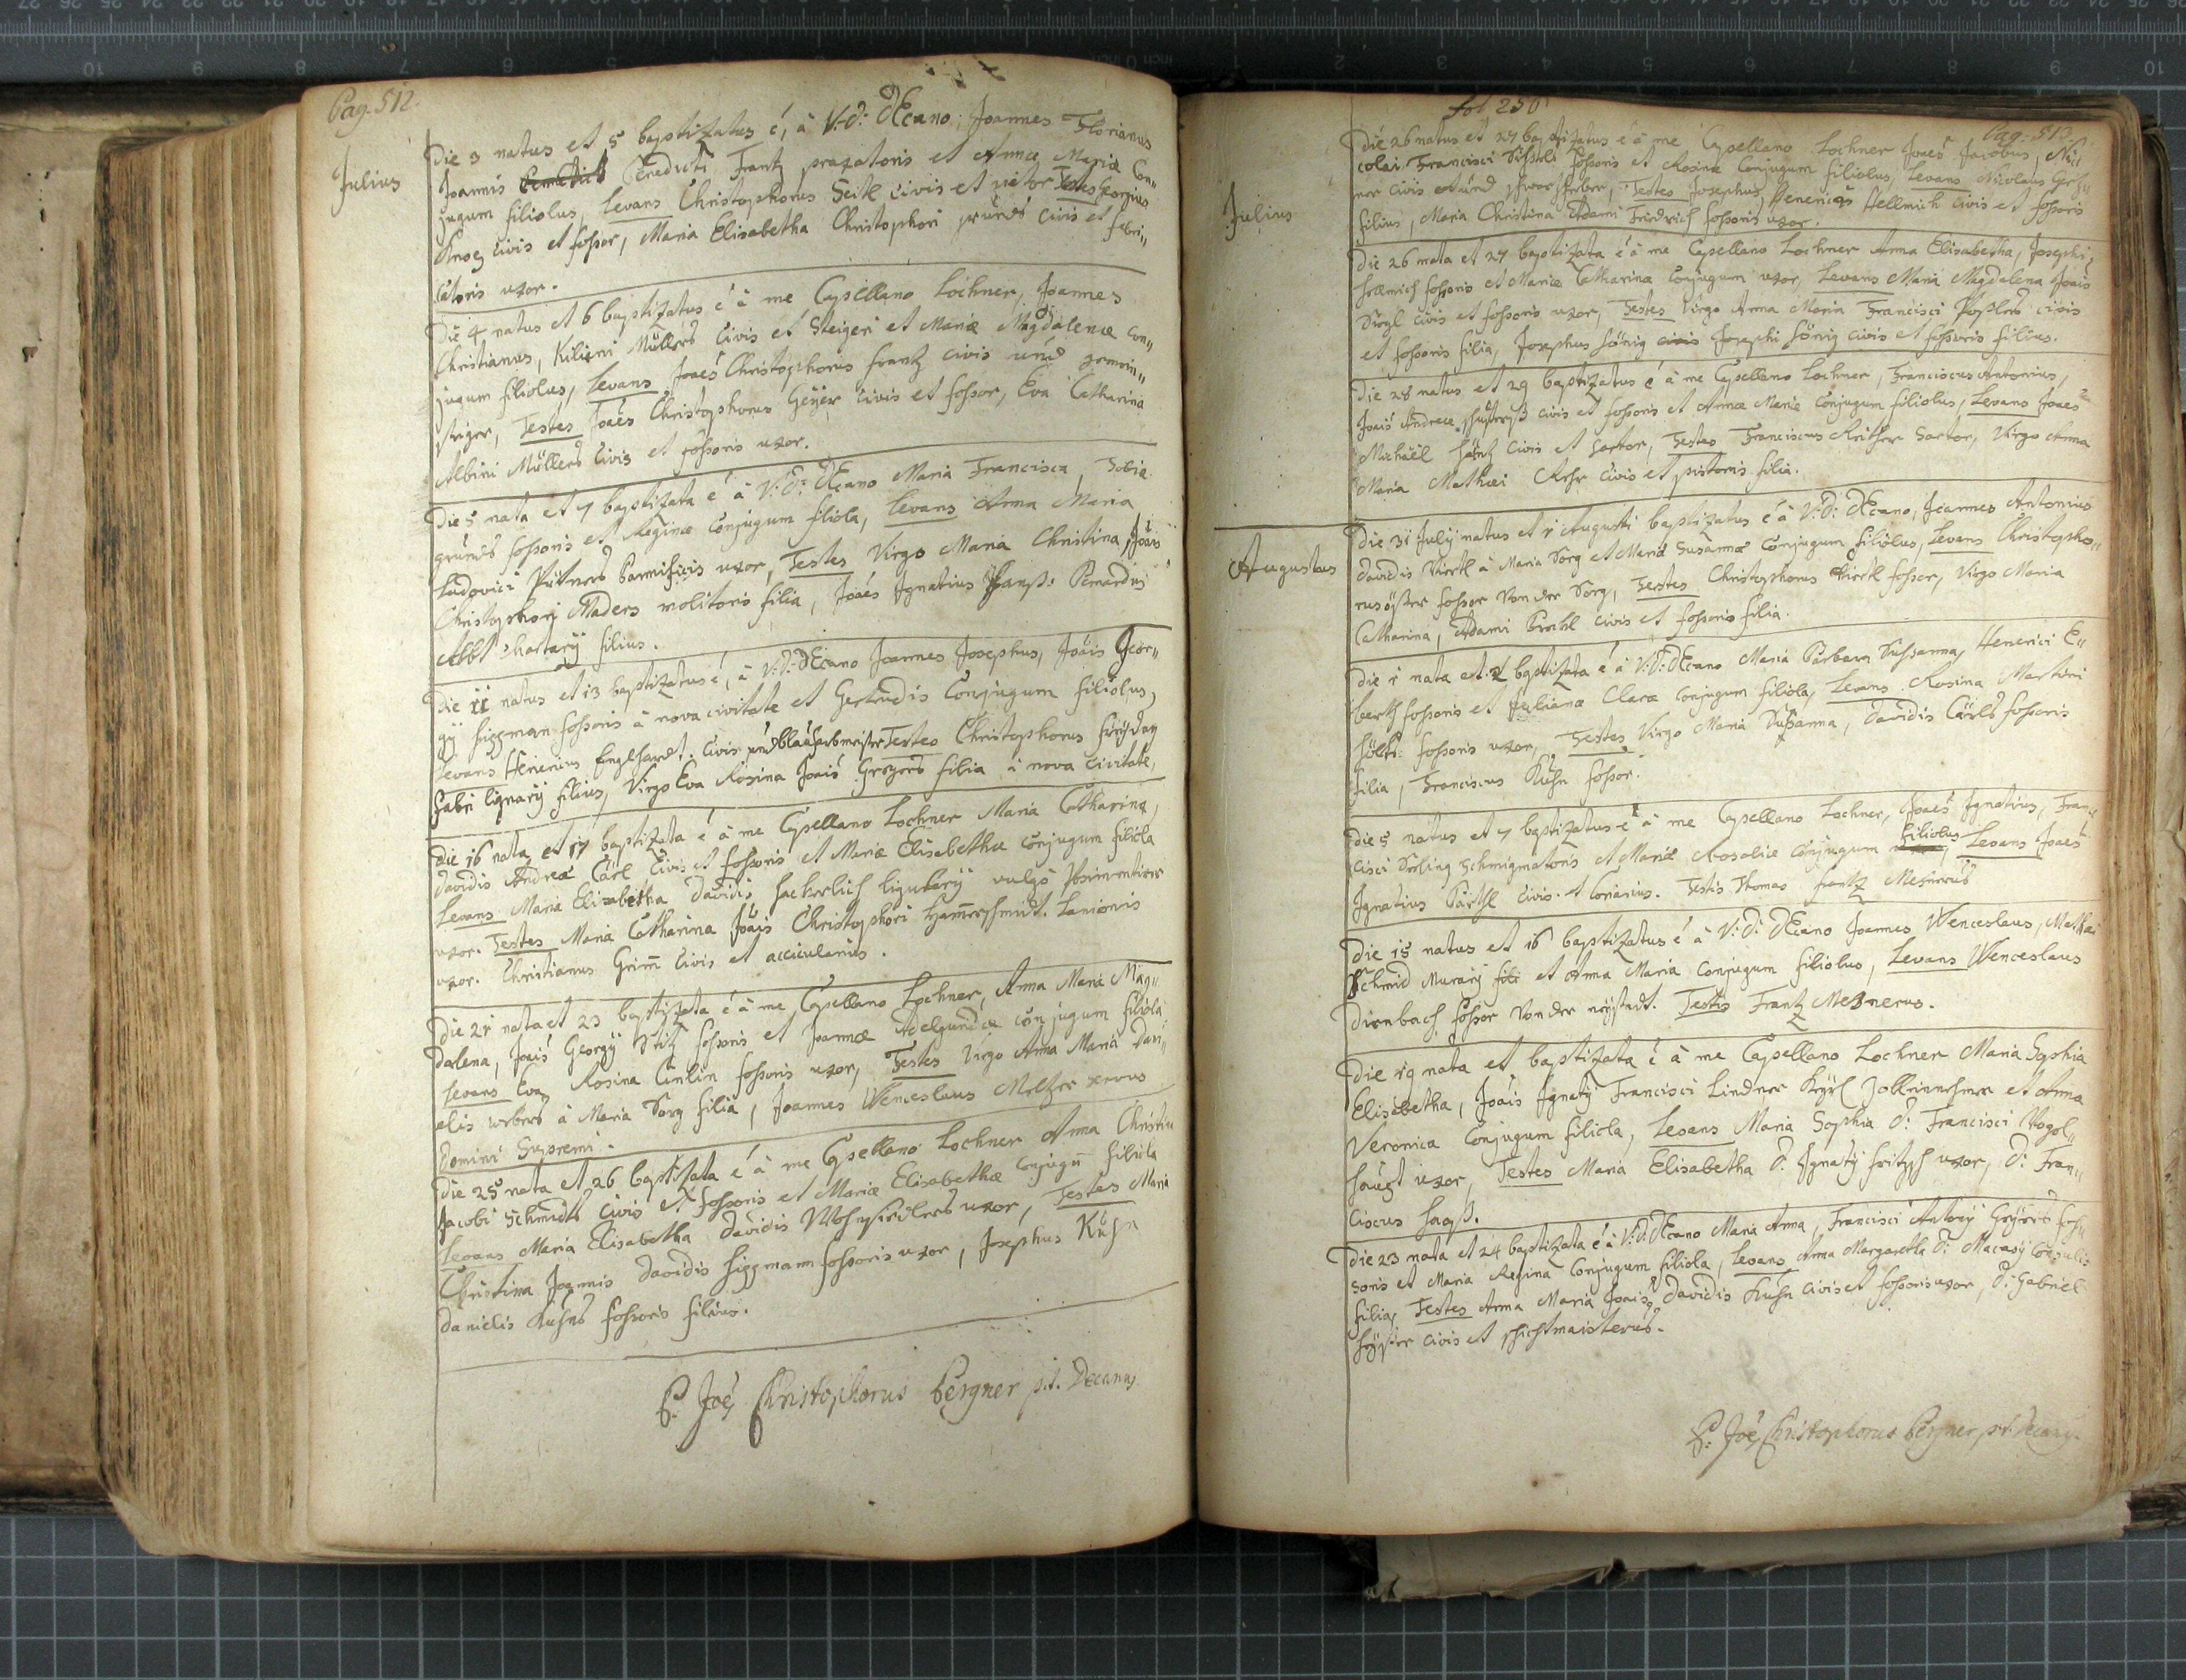 Pag. 512.
Julius
Die 3 natus et 5 baptizatus é, à V: d: dEcano, Joannes Florianus
Joannis Benedicti Frantz prazatoris et Annæ Mariæ Con„
jugum filiolus, Levans Christophorus Seitl civis et victor Testes Georgius
civis et fossor, Maria Elisabetha Christophori civis et fabri„
catoris uxor.
Die 4 natus et 6 baptizatus é à me Capellano Lochner, Joannes
Christianus, Kiliani Müllers Civis et Steigeri et Mariæ Magdalenæ Con„
jugum filiolus, Levans Joaēs Christophorus frantz civis und gemein„
steiger, Testes Joaēs Christophorus Geyer civis et fossor, Eva Catharina
Albini Müllers Civis et fossoris uxor.
Die 5 nata et 7 baptizata é à V: d: dEcano Maria Francisca, Tobiæ
grünes fossoris et Reginæ Conjugum filiola, Levans Anna Maria
Ludovici Pannificis uxor, Testes Virgo Maria Christina, Joāis
Christophori Maders molitoris filia, Joaēs Ignatius
filius.
Die 11 natus et 13 baptizatus é, à V: d: dEcano Joannes Josephus, Joāis Geor„
gÿ Siggman fossoris à nova civitate et Gertrudis Conjugum filiolus,
Levans Henericus Engelhardt. Civis und blaufarbmeister Testes Christophorus
fabri lignarÿ filius, Virgo Eva Rosina Joāis Gregors filia à nova civitate,
Die 16 nata et 17 baptizata é à me Capellano Lochner Maria Catharina,
Davidis Andreæ Cärl Civis et fossoris et Mariæ Elisabethæ conjugum filiola
Levans Maria Elisabetha Davidis vulgò
uxor. Testes Maria Catharina Joāis Christophori Hamerschmidt. Lanionis
uxor. Christianus Grim̄ Civis et accicularius.
Die 21 nata et 23 baptizata é à me Capellano Lochner, Anna Maria Mag„
dalena, Joāis Georgÿ fossoris et Joannæ Adelgundæ conjugum filiola
Levans Eva Rosina fossoris uxor, Testes Virgo Anna Maria Dani„
elis à Maria Sorg filia, Joannes Wenceslaus Meltzer servus
Domini Supremi.
Die 25 nata et 26 baptizata é à me Capellano Lochner Anna Christin
Jacobi Schmidts civis et fossoris et Mariæ Elisabethæ Conjugū filiola
Levans Maria Elisabetha Davidis uxor, Testes Maria
Christina Joannis Davidis Siggmann fossoris uxor, Josephus Kuhn
Danielis Kuhns fossoris filius.
P. Joēs Christophorus Bergner p.t. Decanus
fol 256
Pag: 513.
Julius
Die 26 natus et 27 baptizatus é à me Capellano Lochner Joaēs Jacobus, Ni„
colai Francisci fossoris et Rosinæ Conjugum filiolus, Levans Nicolaus
civis Testes Josephus, Henericus Hellmich Civis et fossoris
filius, Maria Christina Adami Friedrich fossoris uxor.
Die 26 nata et 27 baptizata é à me Capellano Lochner Anna Elisabetha, Josephi
Hellmich fossoris et Mariæ Catharinæ Conjugum uxor, Levans Maria Magdalena Joāis
civis et fossoris uxor, Testes Virgo Anna Maria Francisci civis
et fossoris filia, Josephus Hönig civis Josephi Hönig civis et fossoris filius.
Die 28 natus et 29 baptizatus é à me Capellano Lochner, Franciscus Antonius,
Joāis Andreæ civis et fossoris et Annæ Mariæ Conjugum filiolus, Levans Joaēs
Michaël civis et sartor, Testes Franciscus sartor, Virgo Anna
Maria Mathæi civis et pistoris filia.
Augustus
Die 31 Julÿ natus et 1 Augusti baptizatus é à V: d: dEcano, Joannes Antonius
Davidis à Maria Sorg et Mariæ Susannæ Conjugum filiolus, Levans Christopho„
rus fossor Von der Sorg, Testes Christophorus fossor, Virgo Maria
Catharina, Adami civis et fossoris filia.
Die 1 nata et 2 baptizata é à V: d: dEcano Maria Barbara Sussanna, Henerici E„
berth fossoris et Julianæ Claræ Conjugum filiola, Levans Rosina Martini
fossoris uxor, Testes Virgo Maria Sussanna, Davidis Cärls fossoris
filia, Franciscus Kuhn fossor.
Die 5 natus et 7 baptizatus é à me Capellano Lochner, Joaēs Ignatius, Fran„
cisci et Mariæ Rosaliæ Conjugum filiolus, Levans Joaēs
Ignatius civis et Coriarius. Testis Thomas frantz Meßnerus
Die 15 natus et 16 baptizatus é à V: d: dEcano Joannes Wenceslaus, Mathæi
Schmid Murarÿ et Anna Maria Conjugum filiolus, Levans Wenceslaus
Dirnbach fossor Von der neÿstadt. Testis Frantz Mesnerus.
Die 19 nata et baptizata é à me Capellano Lochner Maria Sophia
Elisabetha, Joāis Ignatÿ Francisci Lindner Zolleinnehmer et Anna
Veronica Conjugum filiola, Levans Maria Sophia d: Francisci Vogol„
haubt uxor, Testes Maria Elisabetha d: Ignatÿ fritzsch uxor, d: Fran„
ciscus
Die 23 nata et 24 baptizata é à V: d: dEcano Maria Anna, Francisci Antonÿ Geÿers fos„
soris et Maria Regina Conjugum filiola, Levans Anna Margaretha d: Consulis
filia, Testes Anna Maria Joāis Davidis Kuhn civis et fossoris uxor, d: Gabriel
civis et schichtmaisterus.
P. Joēs Christophorus Bergner p.t. Decanus